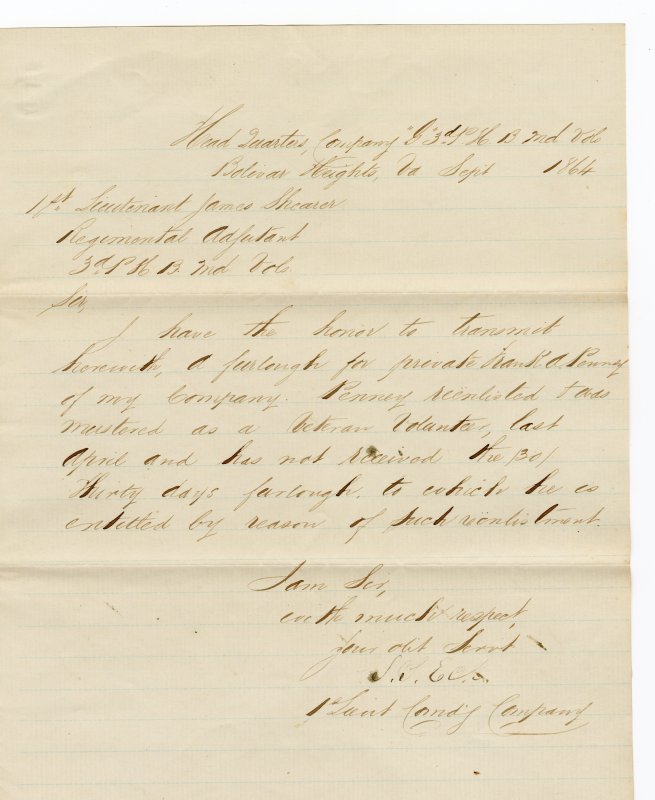 Head Quarters, Company "G" 3d P. H. B. Md Vols
Bolivar Heights, Va Sept 1864
1st Lieutenant James Shearer
Regimental Adjutant
3d P. H. B. Md Vols.
Sir,
I have the honor to transmit
herewith, a furlough for private Frank A. Penney
of my Company. Penney reënlisted & was
mustered as a Veteran Volunteer, last
April and has not received the (30)
thirty days furlough, to which he is
entitled by reason of such reënlistment.
I am Sir,
with much respect,
your obt Servt
1st Lieut Comd'g Company